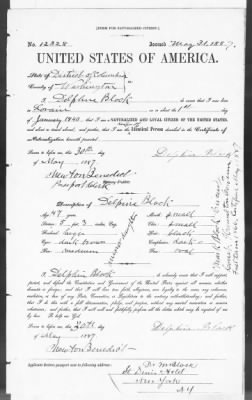 [FORM FOR NATURALIZED CITIZEN.]
No. 12328 Issued May 31. 1887.
UNITED STATES OF AMERICA.
State of District of Columbia
County of Washington
I, Delphine Block, do swear that I was born
in Lorraine on or about the 1st day
of January 1840; that I am a NATURALIZED AND LOYAL CITIZEN OF THE UNITED STATES,
and about to travel abroad; and further, that I am the Identical Person described in the Certificate of
Naturalization herewith presented.
Sworn to before me, this 30th
day of May 1887
Newton Benedict
Passport Clerk
Delphine Block
Description of Delphine Block
Age: 47 years
Mouth: small
Stature: 5 ft. 3 in., Eng.
Chin: small
Eyes: dark brown
Nose: medium
Face: oval
I, Delphine Block, do solemnly swear that I will support,
protect, and defend the Constitution and Government of the United States against all enemies, whether
domestic or foreign; and that I will bear true faith, allegiance, and loyalty to the same, any ordinance,
resolution, or law of any State, Convention, or Legislature to the contrary notwithstanding; and further,
that I do this with a full determination, pledge, and purpose, without any mental reservation or evasion
whatsoever; and further, that I will well and faithfully perform all the duties which may be required of
me by law: So help me God.
Sworn to before me, this 30th
day of May 1887
Newton Benedict
Delphine Block
Applicant desires passport to be sent to
Dr M Block
St. Denis Hotel
New York
N.Y